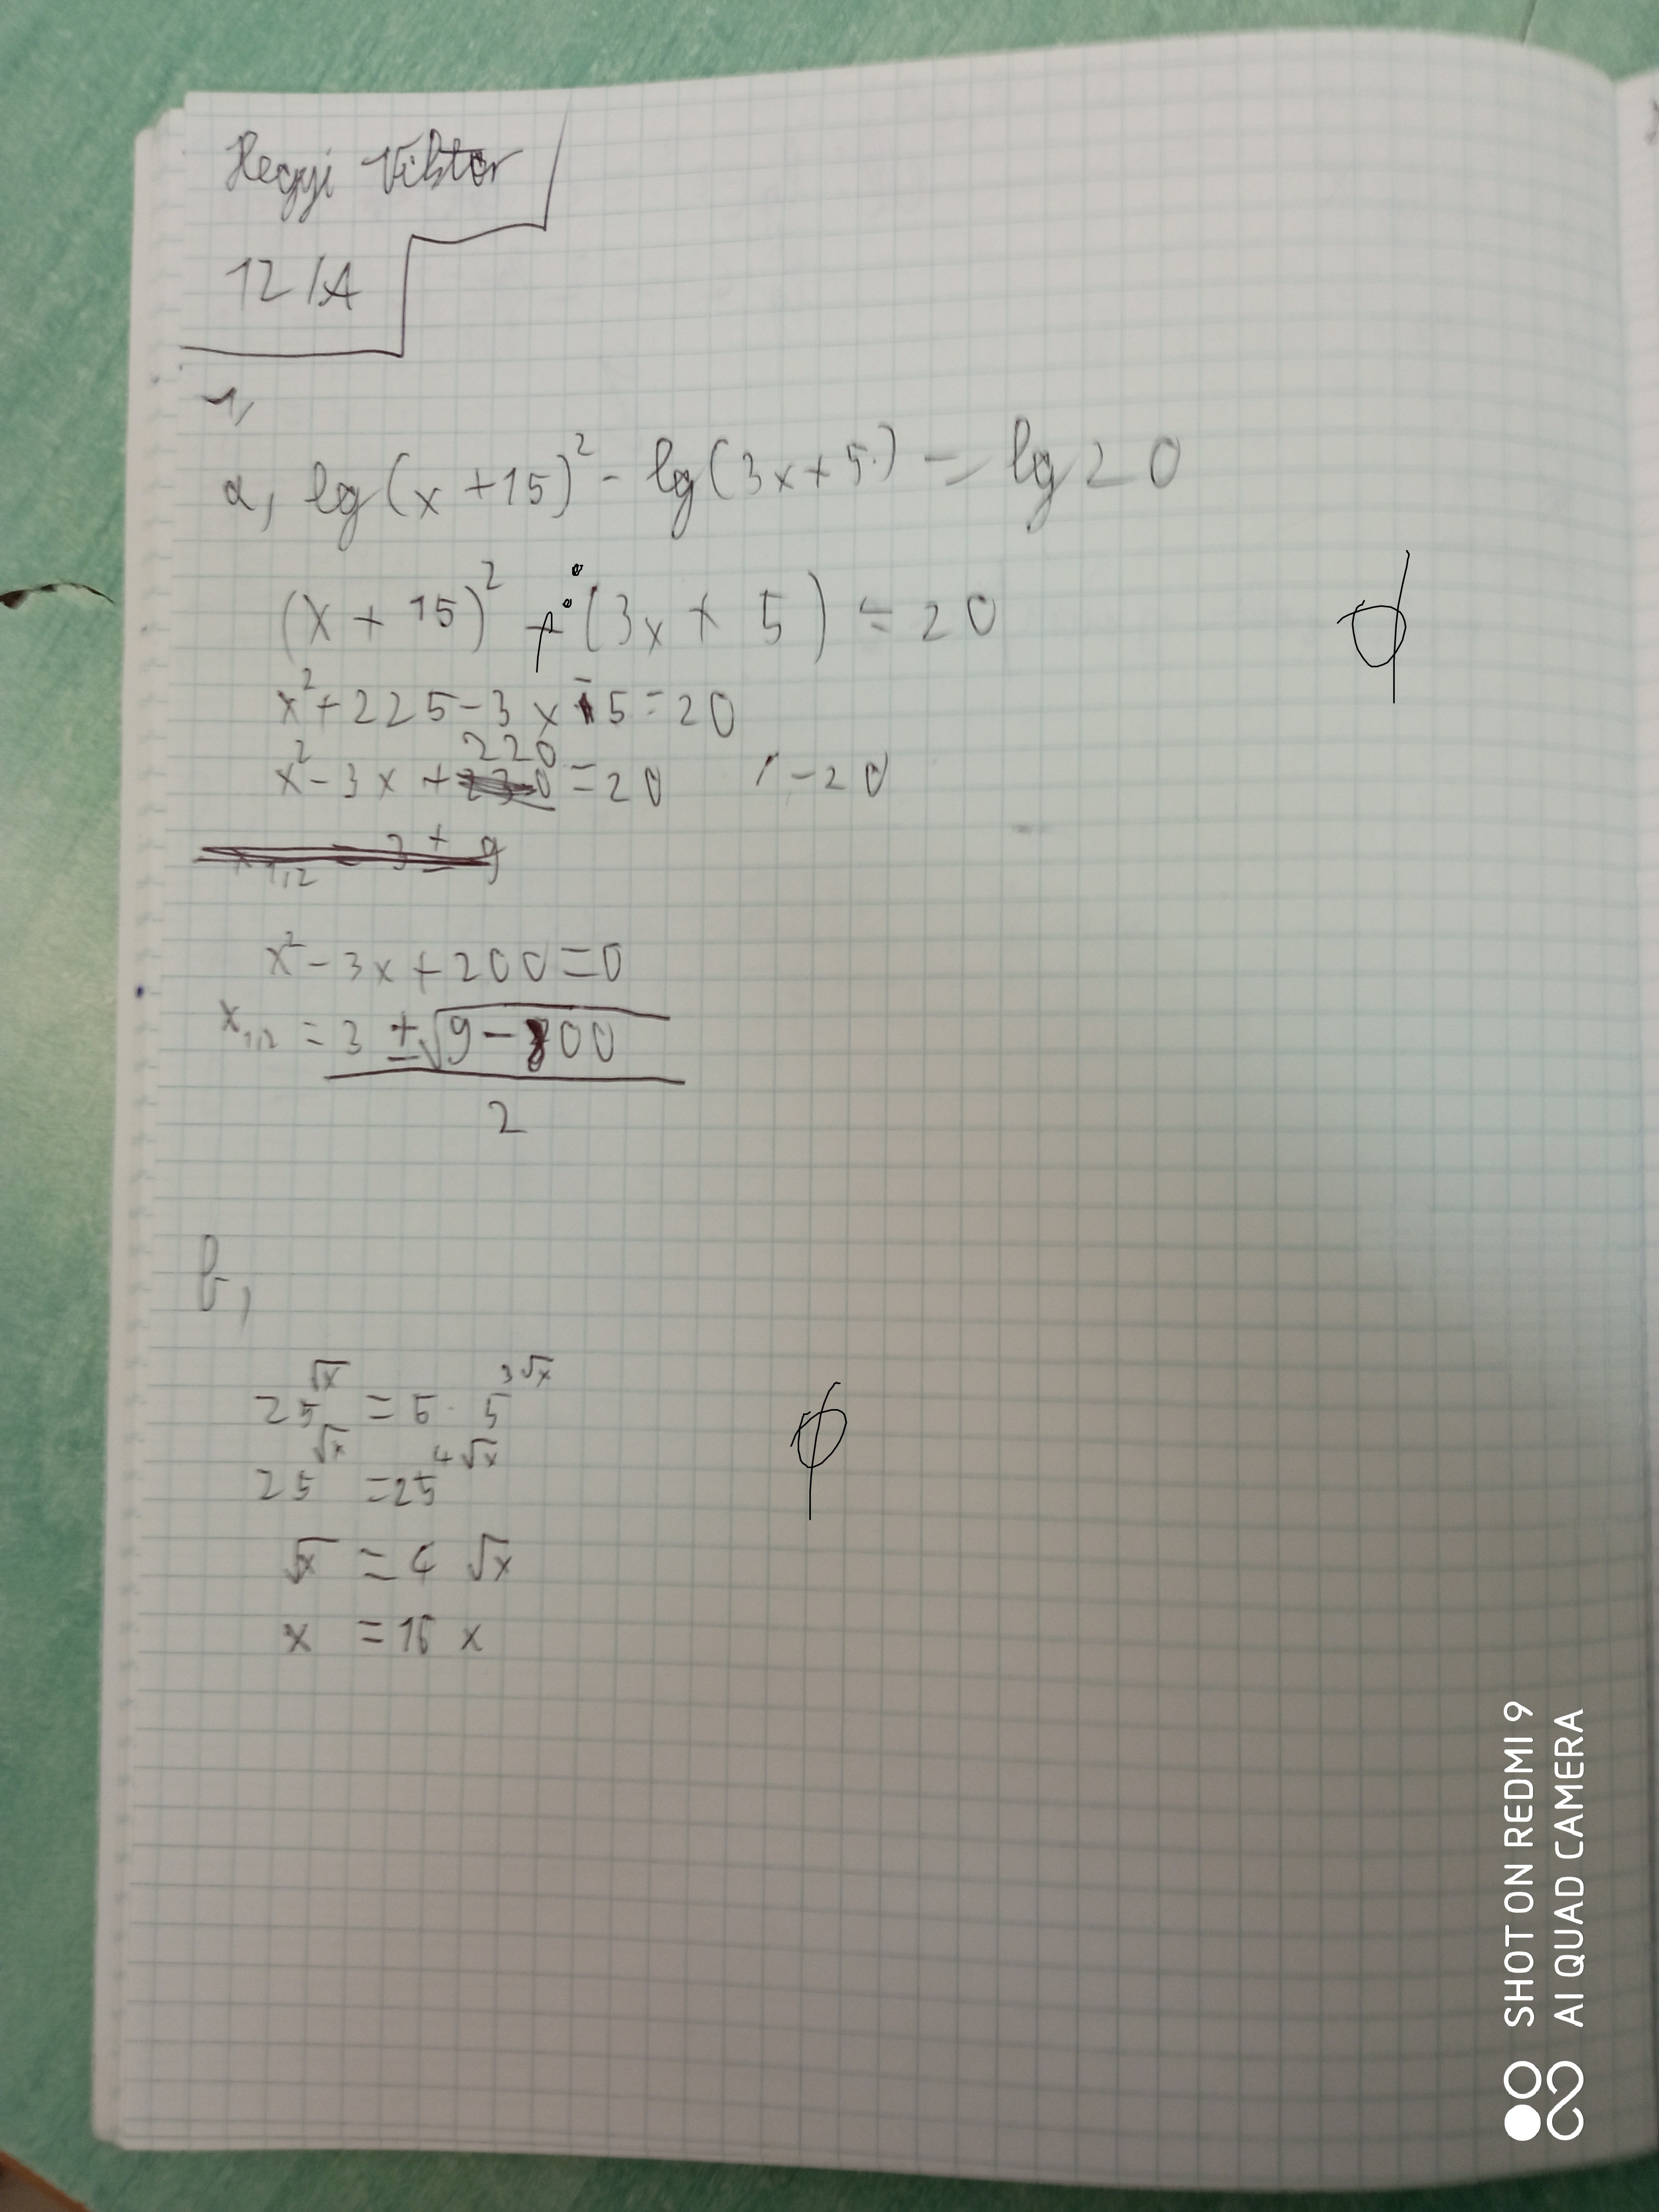 Hegyi Viktor
12/A
1,
a, lg(x+15)² - lg(3x+5) = lg20
(x+15)² - (3x+5) = 20
x²+225-3x-5=20
x²-3x+220=20 /-20
x₁,₂ = 3 ± 9
x²-3x+200=0
x₁,₂ = 3 ± √9-800
2
b,
25^√x = 5 · 5^3√x
25^√x = 25^4√x
√x = 4 √x
x = 16 x
φ
φ
SHOT ON REDMI 9
AI QUAD CAMERA